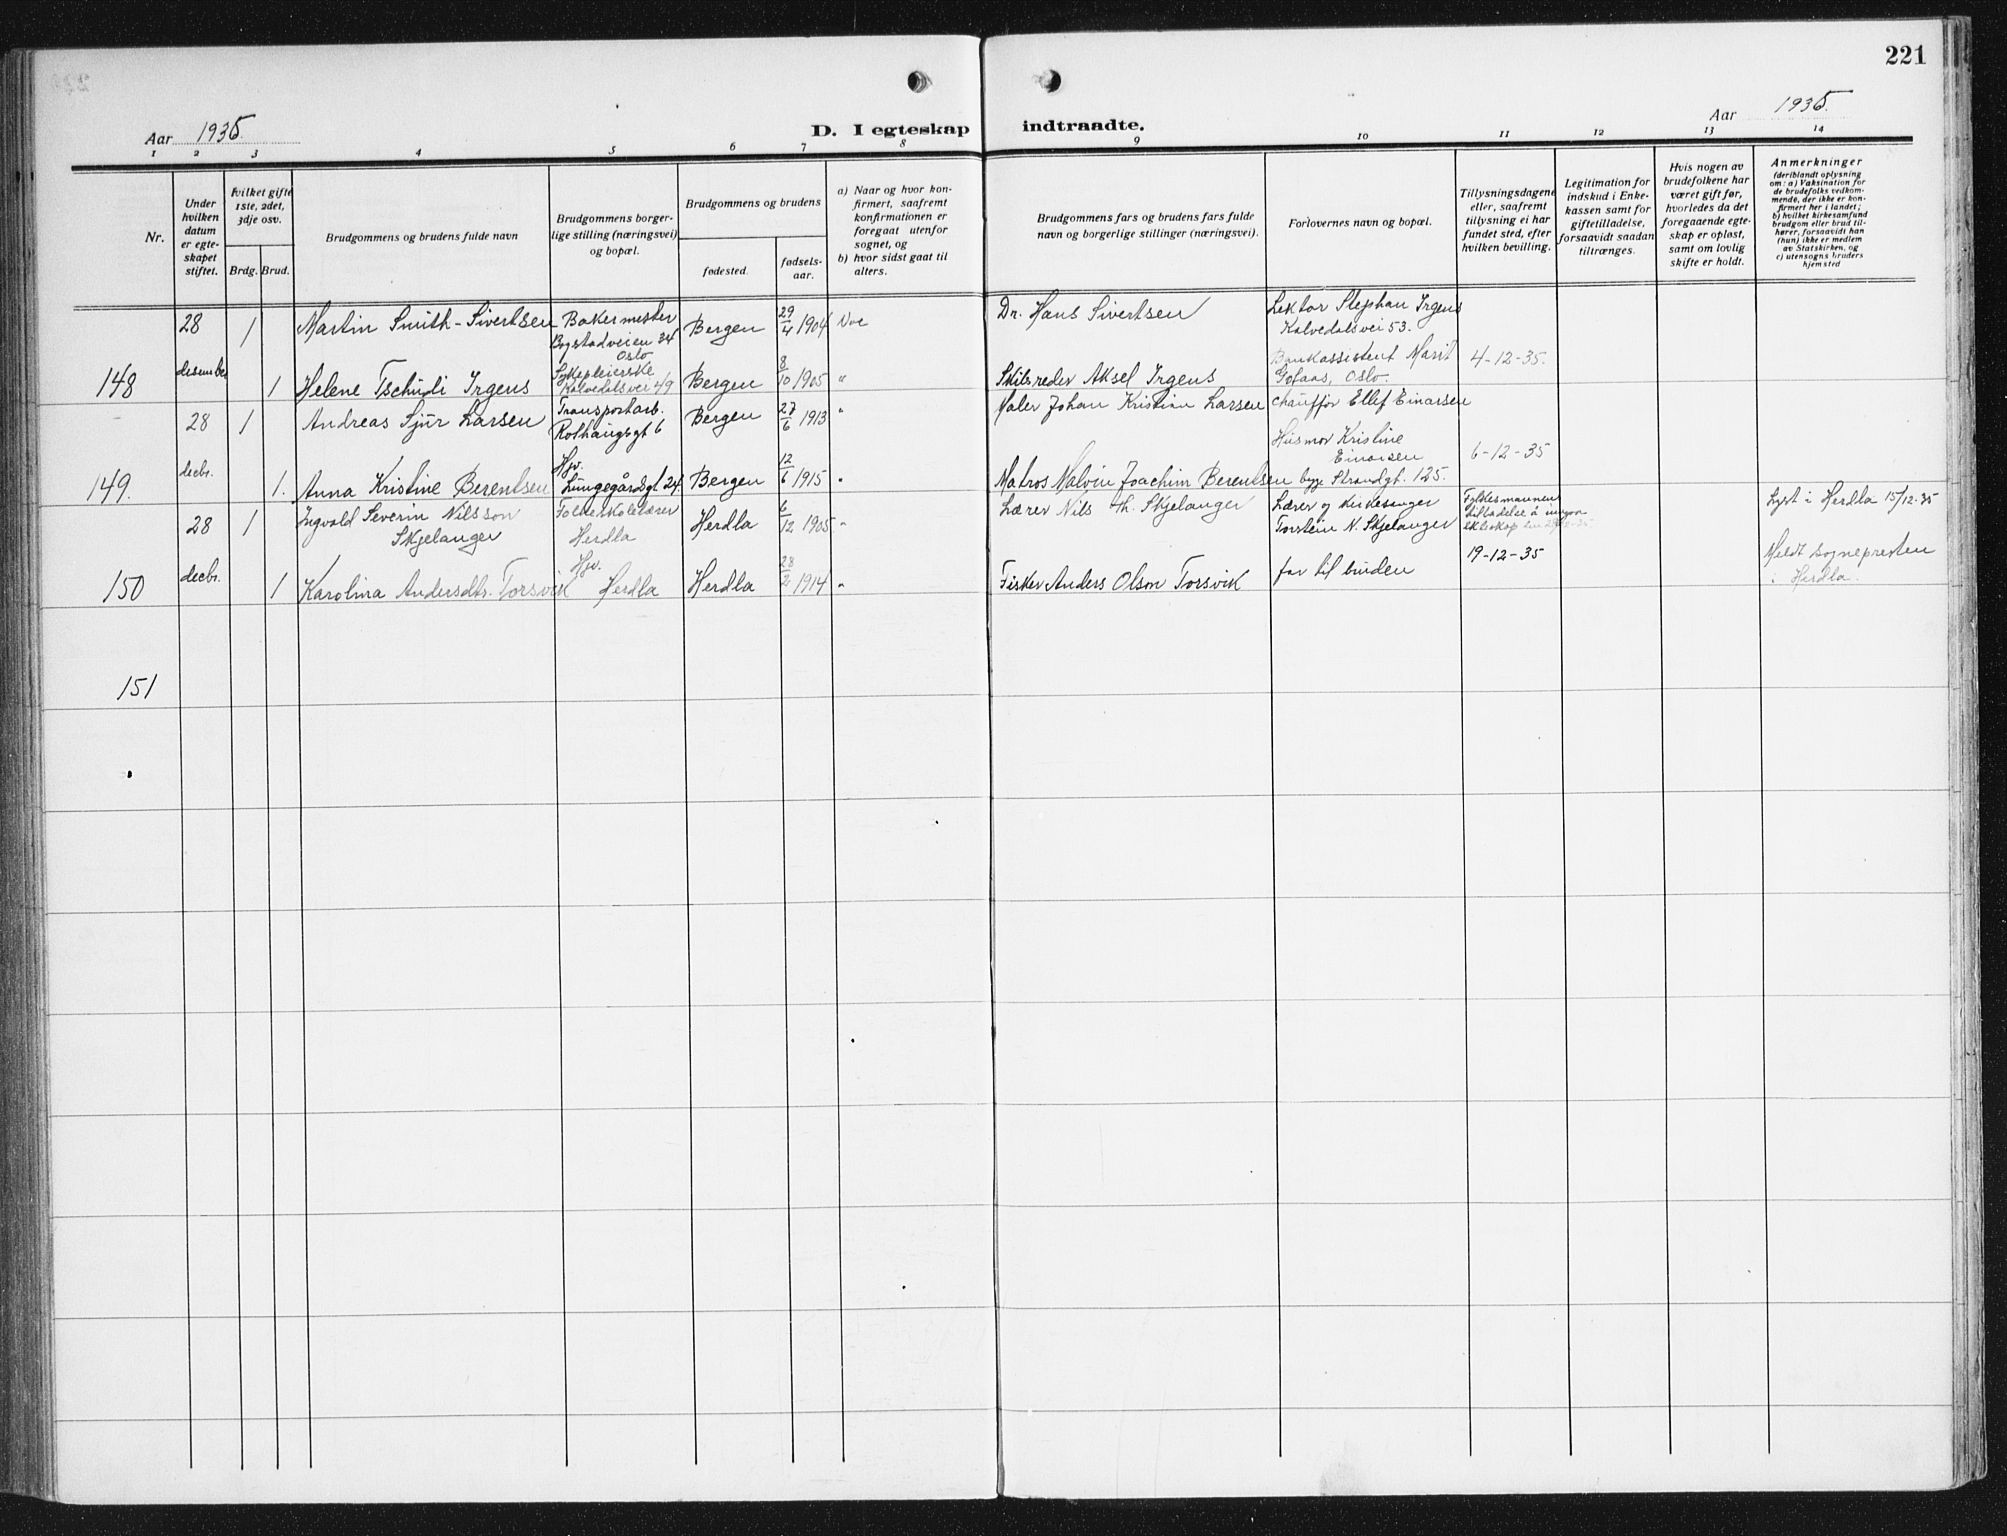 221
Aar 1935.
D. I egteskap indtraadte.
Aar 1935.
1 2 3 4 5 6 7 8 9 10 11 12 13 14
Nr.
Under
hvilken
datum
er egte-
skapet
stiftet.
Hvilket gifte
1ste, 2det,
3dje osv.
Brdg. Brud.
Brudgommens og brudens fulde navn
Brudgommens borger-
lige stilling (næringsvei)
og bopæl.
Brudgommens og brudens
fødested.
fødsels-
aar.
a) Naar og hvor kon-
firmert, saafremt
konfirmationen er
foregaat utenfor
sognet, og
b) hvor sidst gaat til
alters.
Brudgommens fars og brudens fars fulde
navn og borgerlige stillinger (næringsvei).
Forlovernes navn og bopæl.
Tillysningsdagene
eller, saafremt
tillysning ei har
fundet sted, efter
hvilken bevilling.
Legitimation for
indskud i Enke-
kassen samt for
giftetilladelse,
forsaavidt saadan
tiltrænges.
Hvis nogen av
brudefolkene har
været gift før,
hvorledes da det
foregaaende egte-
skap er opløst,
samt om lovlig
skifte er holdt.
Anmerkninger
(deriblandt oplysning
om: a) Vaksination for
de brudefolks vedkom-
mende, der ikke er kon-
firmert her i landet;
b) hvilket kirkesamfund
brudgom eller brud til-
hører, forsaavidt han
(hun) ikke er medlem
av Statskirken, og
c) utensogns bruders
hjemsted
148
28
desember
1
Martin Smith-Sivertsen
Bakermester
Bogstadveien 34
Oslo
Bergen
29/4 1904
Dr. Hans Sivertsen
Lektor Stephan Irgens
Kalvedalsvei 53.
1
Helene Tschudi Irgens
Sykepleierske
Kalvedalsvei 49
Bergen
8/10 1905
"
Skibsreder Aksel Irgens
Bankassistent Marit
Oslo.
4-12-35.
149.
28
decbr.
1
Andreas Sjur Larsen
Transportarb.
Rothaugsgt 6
Bergen
27/6 1913
"
Maler Johan Kristian Larsen
Chauffør Ellef Einarsen
1.
Anna Kristine Berentsen
Hjv.
Lungegårdsgt 24.
Bergen
12/6 1915
"
Matros Malvin Joachim Berentsen
Husmor Kristine
Einarsen
begge Strandgt. 125.
6-12-35
150
28
decbr.
1
Ingvald Severin Nilsson
Skjelanger
Folkeskolelærer
Herdla
Herdla
6/12 1905
"
Lærer Nils Th. Skjelanger
Lærer og kirkesanger
Torstein N. Skjelanger
Fylkesmannens
tilladelse å inngå
ekteskap
Lyst i Herdla 15/12-35
1
Karolina Andersdtr. Torsvik
Hjv.
Herdla
Herdla
28/2 1914
"
Fisker Anders Olson Torsvik
far til bruden
19-12-35
Meldt sognepresten
i Herdla.
151